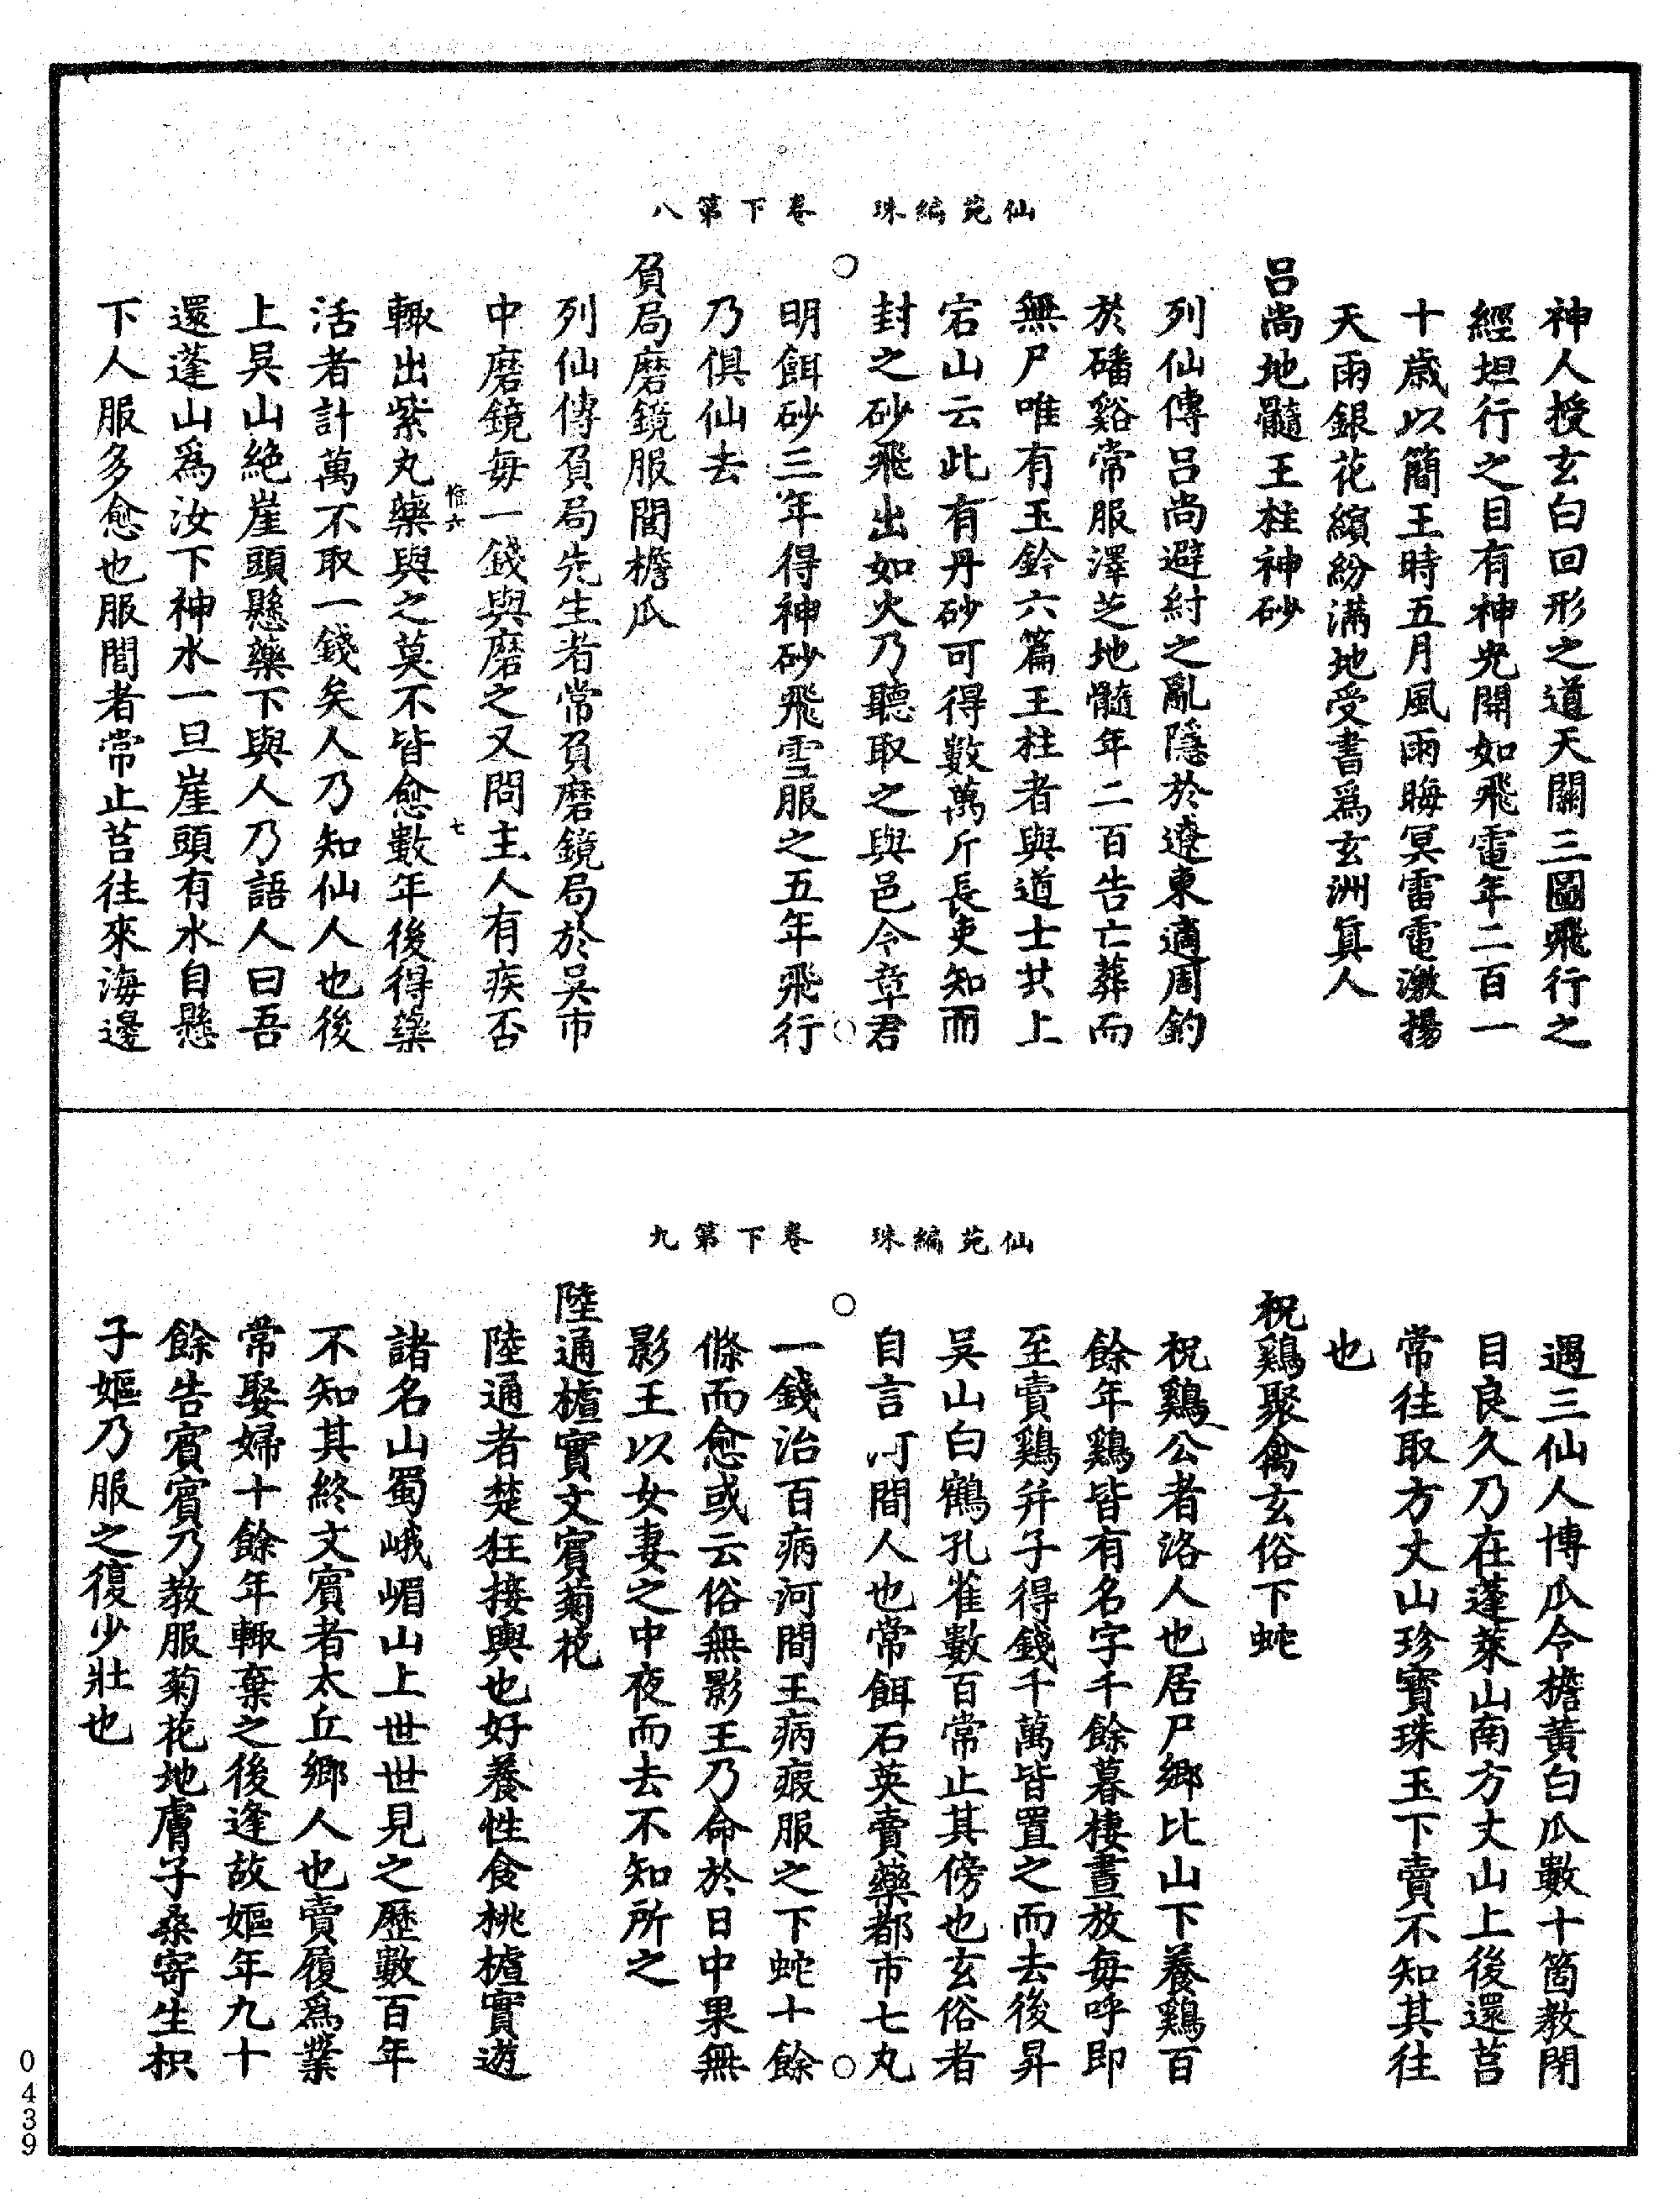 仙苑編珠　卷下第八
神人授玄白回形之道天關三圖飛行之
經坦行之目有神光開如飛電年二百一
十歲以簡王時五月風雨晦冥雷電激揚
天雨銀花繽紛滿地受書爲玄洲眞人
呂尚地髓王柱神砂
列仙傳呂尚避紂之亂隱於遼東適周釣
於磻谿常服澤芝地髓年二百告亡葬而
無尸唯有玉鈐六篇王柱者與道士共上
宕山云此有丹砂可得數萬斤長吏知而
封之砂飛出如火乃聽取之與邑令章君
明餌砂三年得神砂飛雪服之五年飛行
乃俱仙去
負局磨鏡服閭檐瓜
列仙傳負局先生者常負磨鏡局於吳市
中磨鏡每一錢與磨之又問主人有疾否
輙出紫丸藥與之莫不皆愈數年後得藥
活者計萬不取一錢矣人乃知仙人也後
上吳山絶崖頭懸藥下與人乃語人曰吾
還蓬山爲汝下神水一旦崖頭有水自懸
下人服多愈也服閭者常止莒往來海邊
仙苑編珠　卷下第九
遇三仙人博瓜令檐黃白瓜數十箇教閉
目良久乃在蓬萊山南方丈山上後還莒
常往取方丈山珍寶珠玉下賣不知其往
也
祝鷄聚禽玄俗下蛇
祝鷄公者洛人也居尸鄉比山下養鷄百
餘年鷄皆有名字千餘暮棲晝放每呼即
至賣鷄并子得錢千萬皆置之而去後昇
吳山白鶴孔雀數百常止其傍也玄俗者
自言河間人也常餌石英賣藥都市七丸
一錢治百病河間王病瘕服之下蛇十餘
條而愈或云俗無影王乃命於日中果無
影王以女妻之中夜而去不知所之
陸通櫨實文賓菊花
陸通者楚狂接輿也好養性食桃櫨實遊
諸名山蜀峨嵋山上世世見之歷數百年
不知其終文賓者太丘鄉人也賣履爲業
常娶婦十餘年輙棄之後逢故嫗年九十
餘告賓賓乃教服菊花地膚子桑寄生枳
子嫗乃服之復少壯也
七
0439